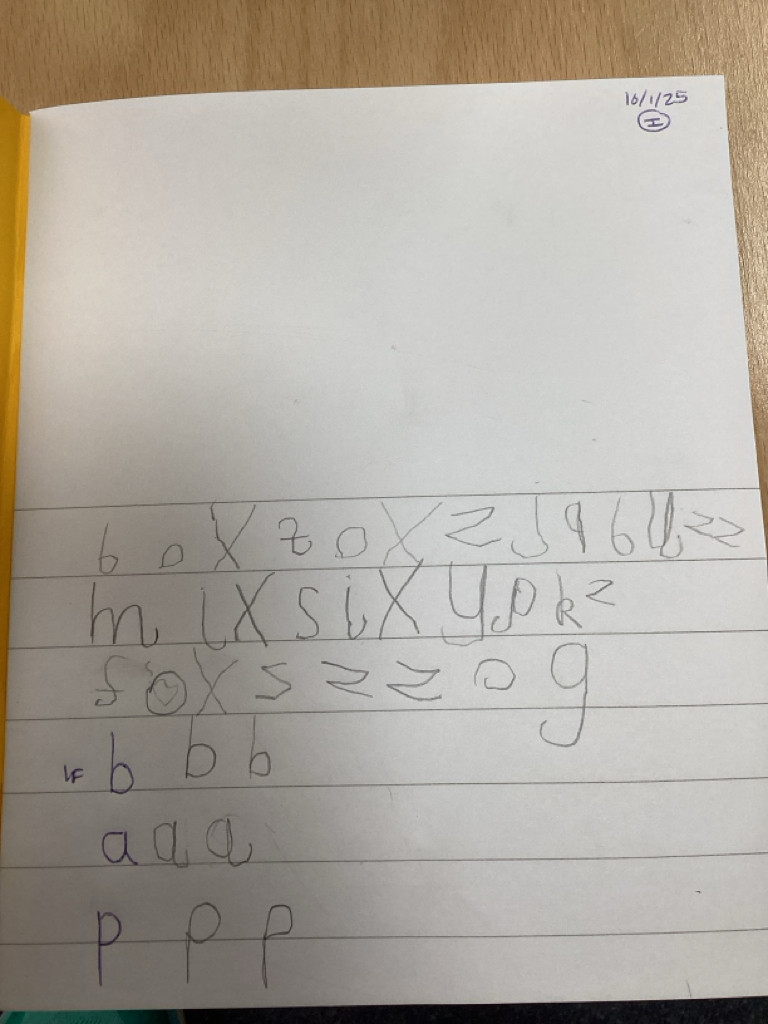 10/1/25
I
box zox z
mix six yok z
fox s z z o g
LF b b b
a a a
p p p